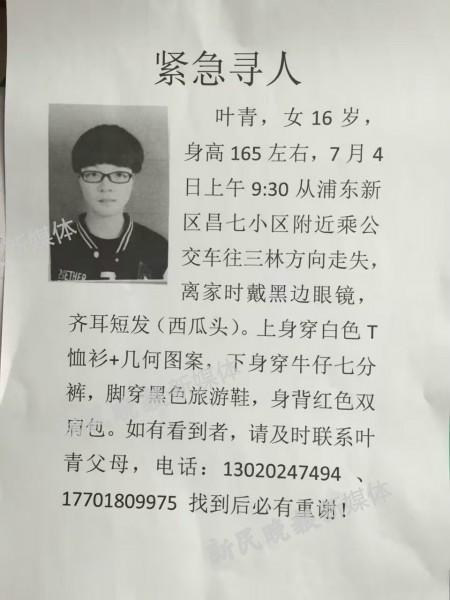 紧急寻人
叶青，女 16 岁，
身高 165 左右，7 月 4
日上午 9:30 从浦东新
区昌七小区附近乘公
交车往三林方向走失，
离家时戴黑边眼镜，
齐耳短发（西瓜头）。上身穿白色 T
恤衫+几何图案，下身穿牛仔七分
裤，脚穿黑色旅游鞋，身背红色双
肩包。如有看到者，请及时联系叶
青父母，电话：13020247494 、
17701809975 找到后必有重谢！
新民晚报新媒体